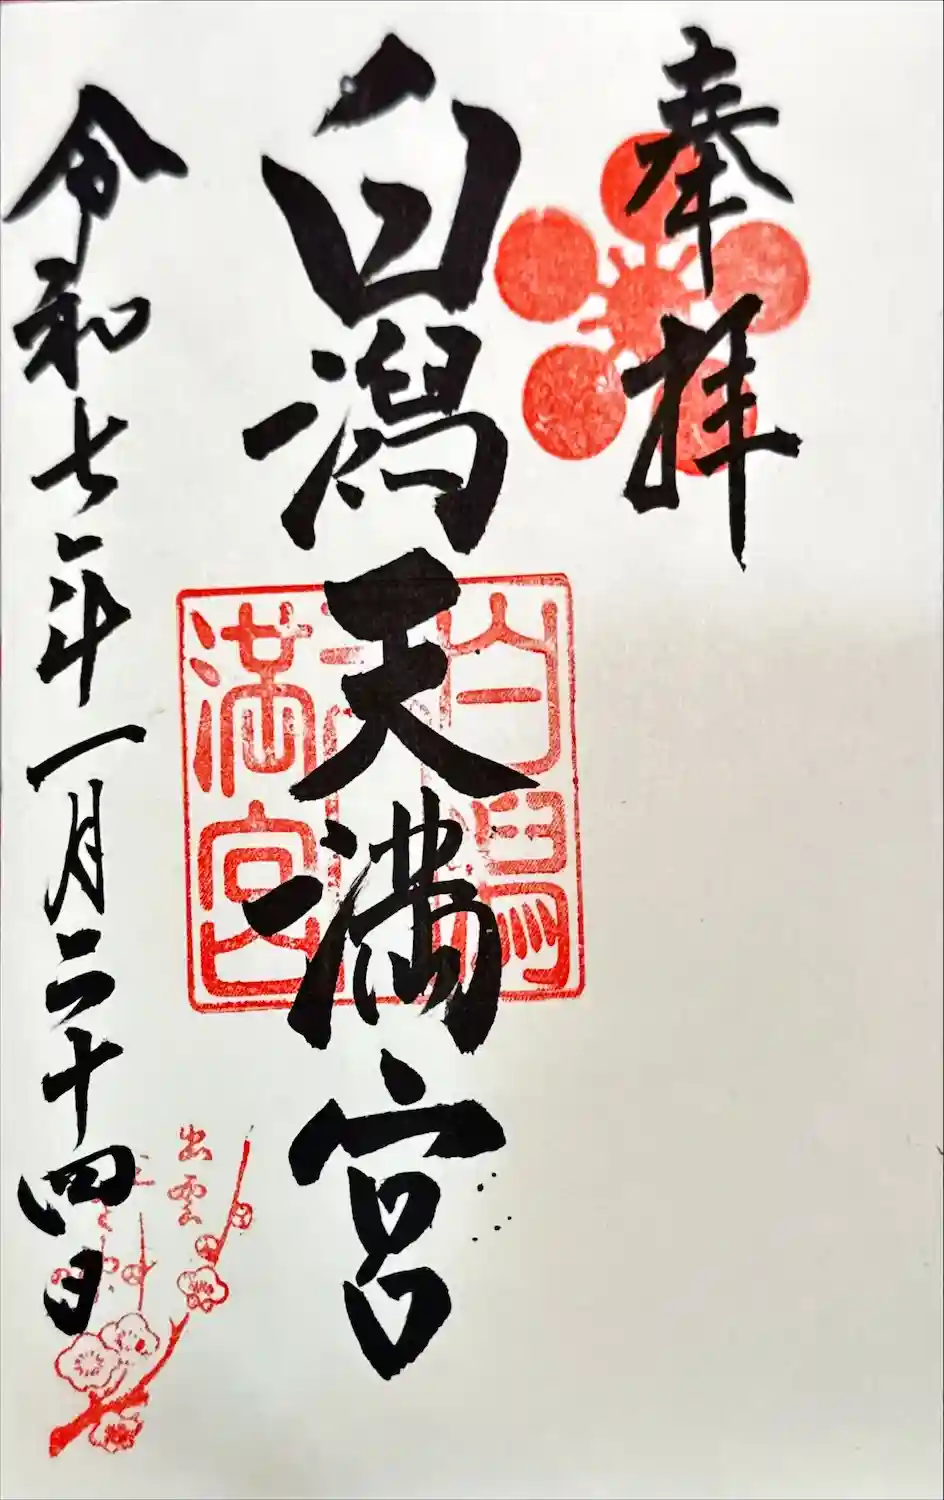 奉拝
白潟天満宮
令和七年一月二十四日
白潟
天
満宮
出雲